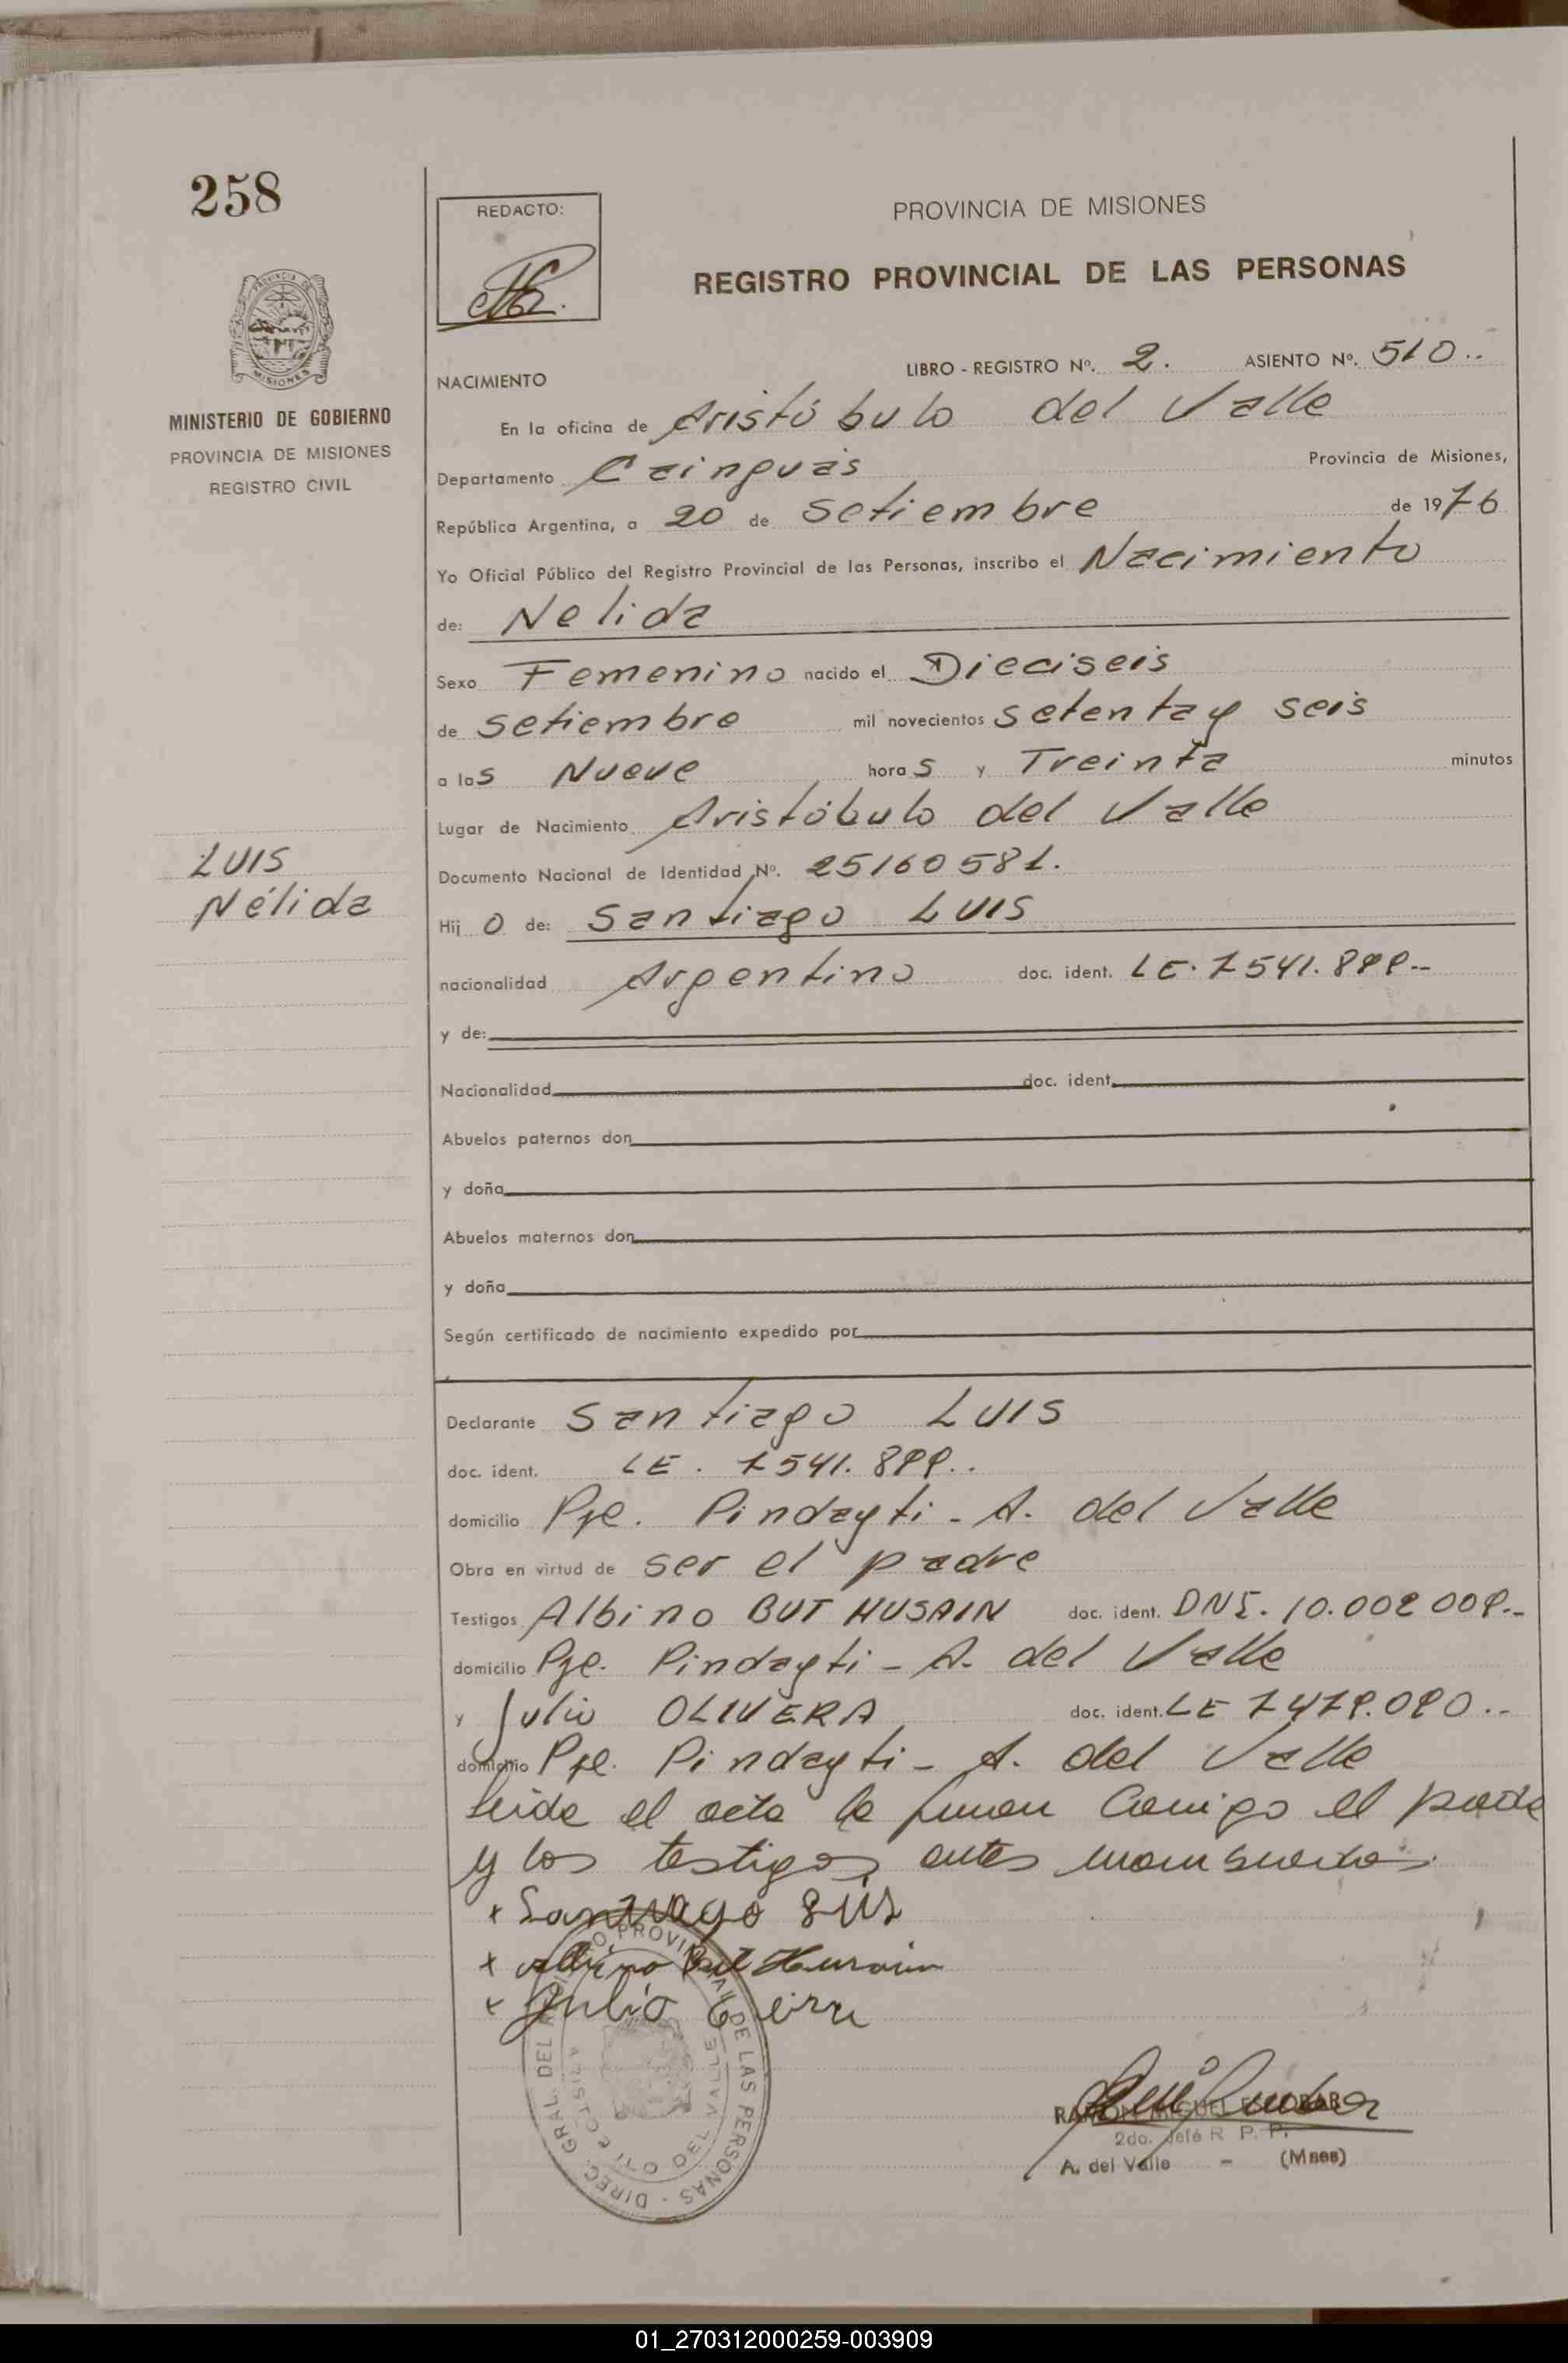 258
REDACTO:
PROVINCIA DE MISIONES
REGISTRO PROVINCIAL DE LAS PERSONAS
MISIONES
MINISTERIO DE GOBIERNO
PROVINCIA DE MISIONES
REGISTRO CIVIL
LIBRO - REGISTRO Nº. 2. ASIENTO Nº. 510..
NACIMIENTO
En la oficina de Aristóbulo del Valle
Departamento Cainguás Provincia de Misiones,
República Argentina, a 20 de Setiembre de 1976
Yo Oficial Público del Registro Provincial de las Personas, inscribo el Nacimiento
de: Nelida
Sexo Femenino nacido el Dieciseis
de Setiembre mil novecientos setenta y seis
a las Nueve horas y Treinta minutos
Lugar de Nacimiento Aristóbulo del Valle
LUIS
Nélida
Documento Nacional de Identidad Nº. 25160581.
Hijo de: Santiago LUIS
nacionalidad Argentino doc. ident. LE. 7541.899--
y de:
Nacionalidad doc. ident.
Abuelos paternos don
y doña
Abuelos maternos don
y doña
Según certificado de nacimiento expedido por
Declarante Santiago LUIS
doc. ident. LE. 7541.899..
domicilio Pje. Pindayti - A. del Valle
Obra en virtud de ser el padre
Testigos Albino BUT HUSAIN doc. ident. DNI. 10.002009.--
domicilio Pje. Pindayti - A. del Valle
y Julio OLIVERA doc. ident. LE 7479.090..-
domicilio Pje. Pindayti - A. del Valle
leida el acta la firman Conmigo el padre
y los testigos antes mensuados.
x Santiago Luis
x Albino But Husain
x Julio
DIREC. GRAL. DEL REGISTRO PROVINCIAL DE LAS PERSONAS
ARISTOBULO DEL VALLE
RAMON MIGUEL ESCOBAR
2do. Jefe R. P. P.
A. del Valle - (Mnes)
01_270312000259-003909